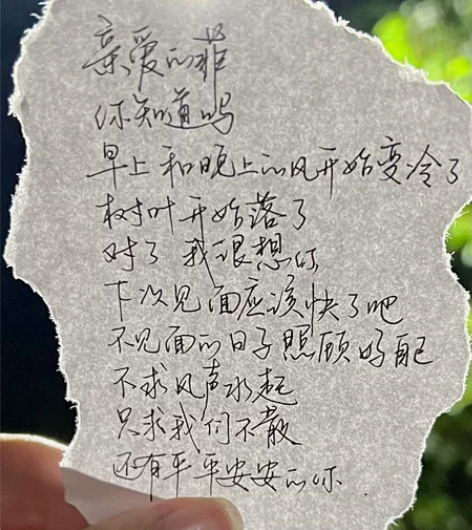 亲爱的菲
你知道吗
早上和晚上的风开始变冷了
树叶开始落了
对了 我很想你
下次见面应该快了吧
不见面的日子照顾好自己
不求风声水起
只求我们不散
还有平平安安的你